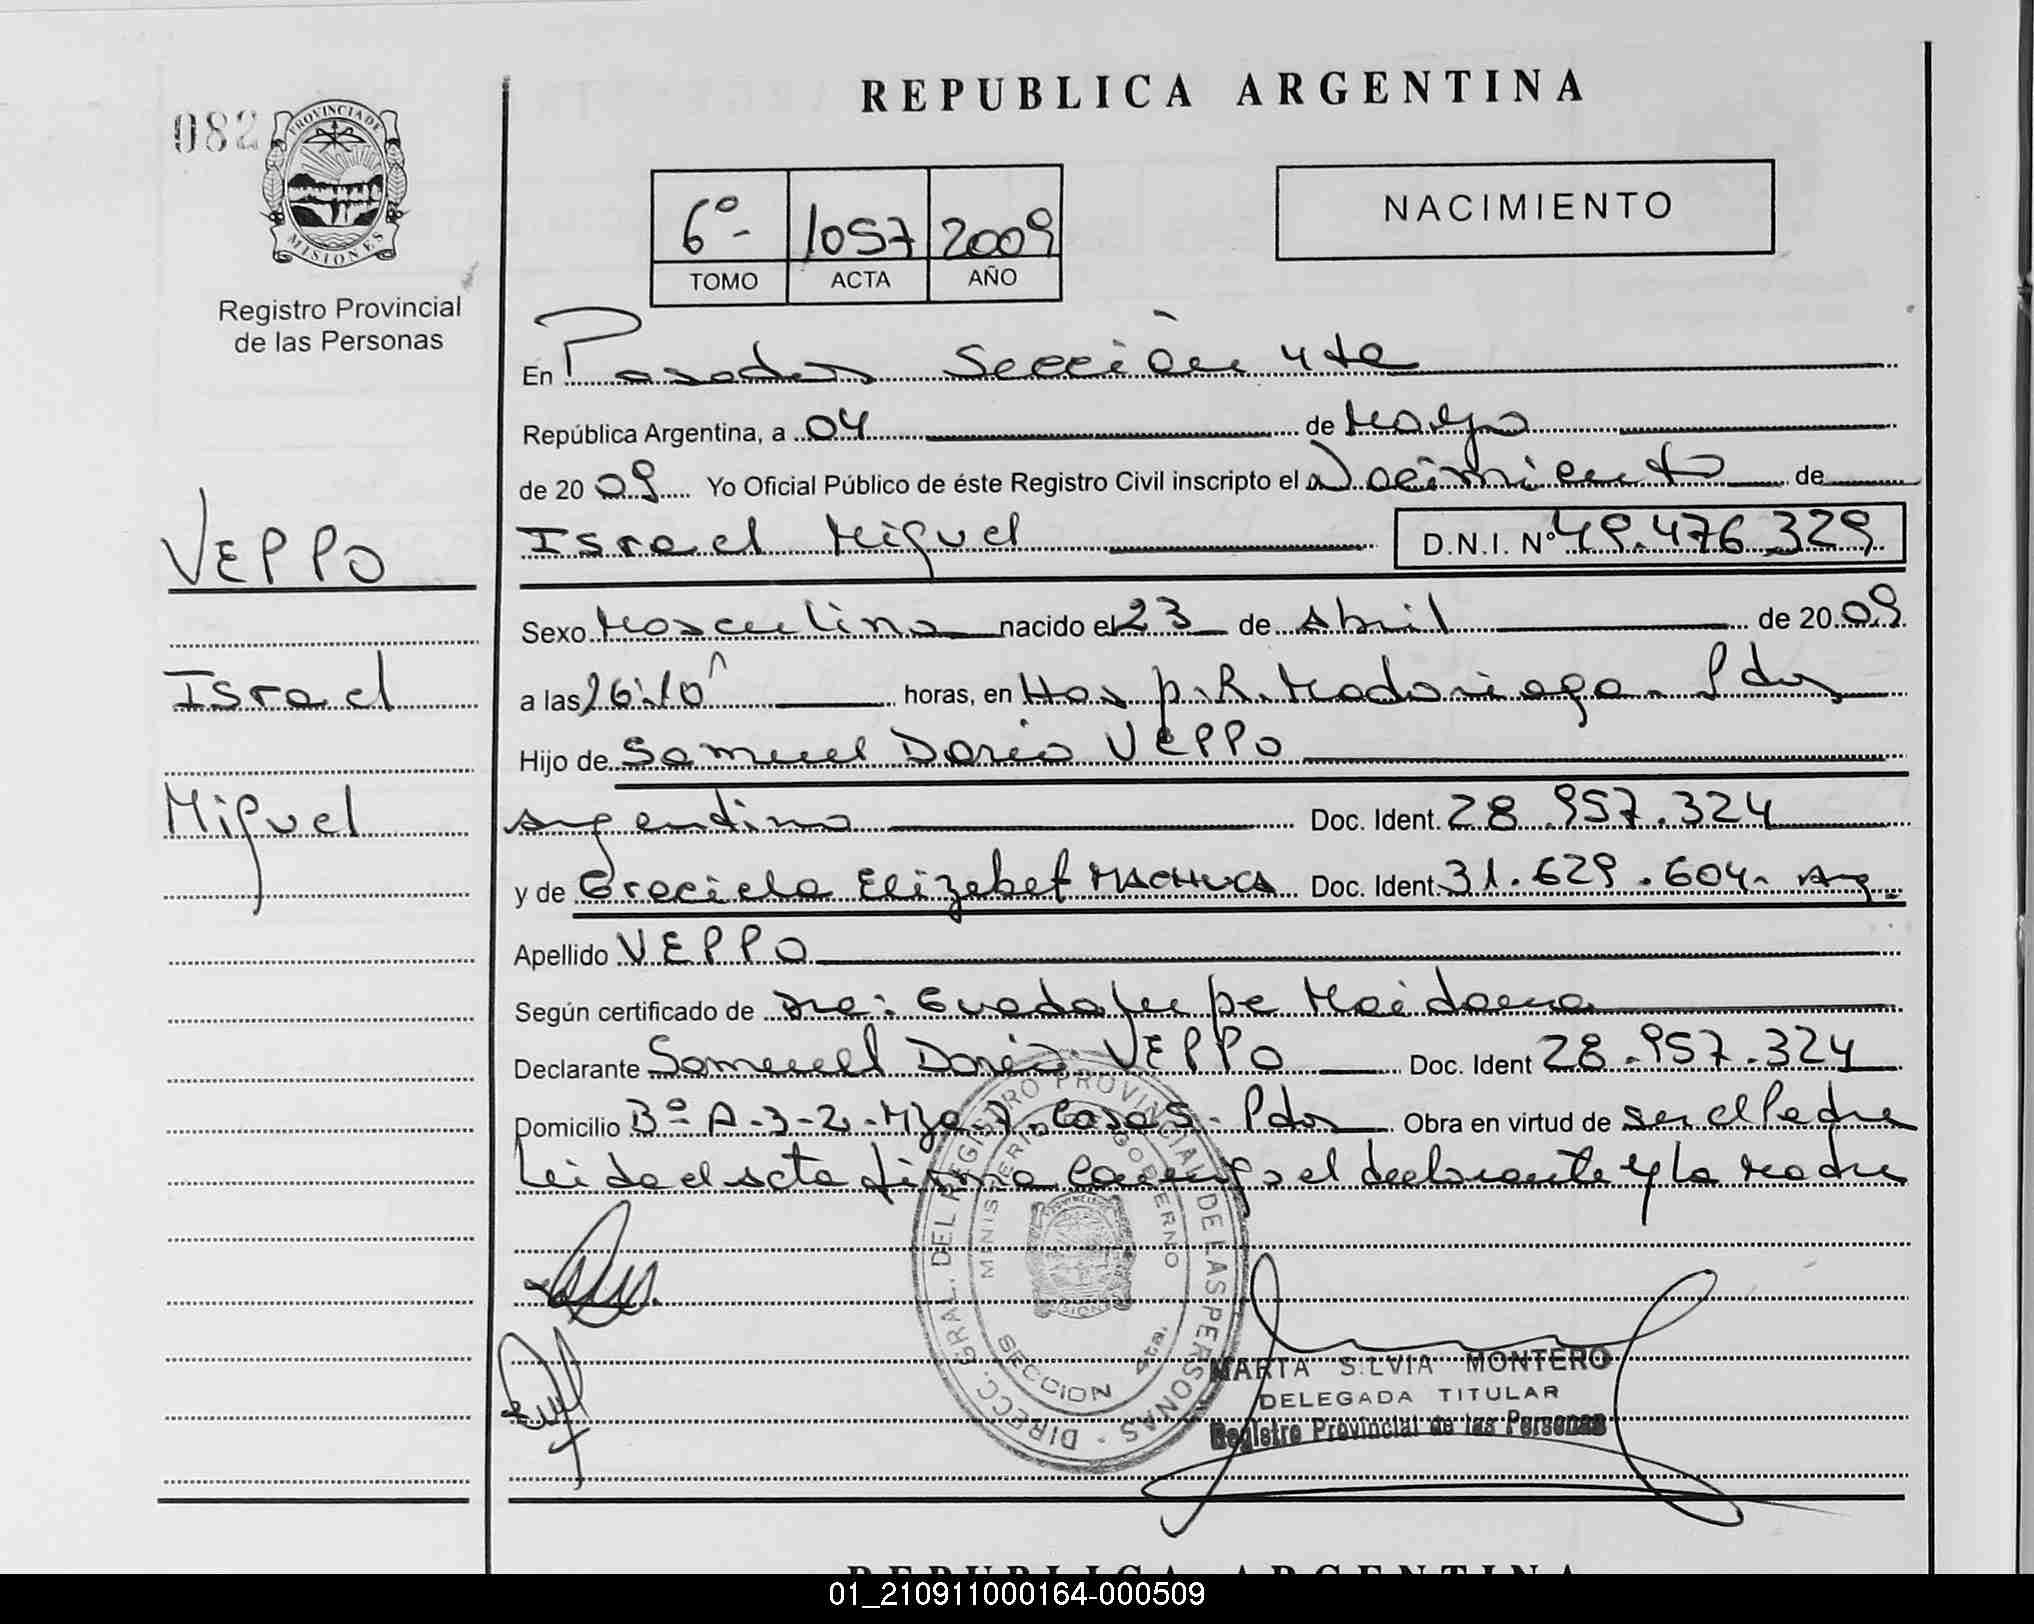 REPUBLICA ARGENTINA
082
PROVINCIA DE
MISIONES
Registro Provincial
de las Personas
NACIMIENTO
6º- 1057 2009
TOMO ACTA AÑO
En Posadas Sección 4ta
República Argentina, a 04 de Mayo
de 2009 Yo Oficial Público de éste Registro Civil inscripto el Nacimiento de
VEPPO
Israel Miguel D.N.I. Nº 49.476.329
Sexo Masculino nacido el 23 de Abril de 2009
Israel
a las 16:10 horas, en Hosp. R. Madariaga - Pdas
Hijo de Samuel Dario VEPPO
Miguel
Argentino Doc. Ident. 28.957.324
y de Graciela Elizabet MACHUCA Doc. Ident. 31.629.604- Arg.
Apellido VEPPO
Según certificado de Dra: Guadalupe Maidana
Declarante Samuel Dario VEPPO Doc. Ident 28.957.324
Domicilio Bº A-3-2-Mza-7-Casa 5- Pdas Obra en virtud de ser el Padre
Leida el acta firma conmigo el declarante y la Madre
DIRECC. GRAL. DEL REGISTRO PROVINCIAL DE LAS PERSONAS -
MINISTERIO GOBIERNO
SECCION 4ta.
MARTA SILVIA MONTERO
DELEGADA TITULAR
Registro Provincial de las Personas
REPUBLICA ARGENTINA
01_210911000164-000509